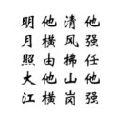 他强任他强
清风拂山岗
他横由他横
明月照大江